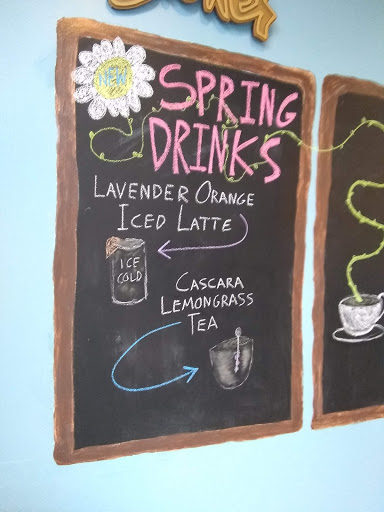 NEW
SPRING
DRINKS
LAVENDER ORANGE
ICED LATTE
ICE
COLD
CASCARA
LEMONGRASS
TEA